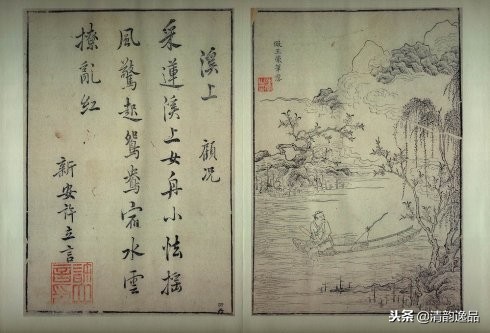 溪上 顧況
采蓮溪上女舟小怯搖
風驚起鴛鴦宿水雲
撩亂紅
新安許立言
倣王蒙筆意
头条 @清韵逸品